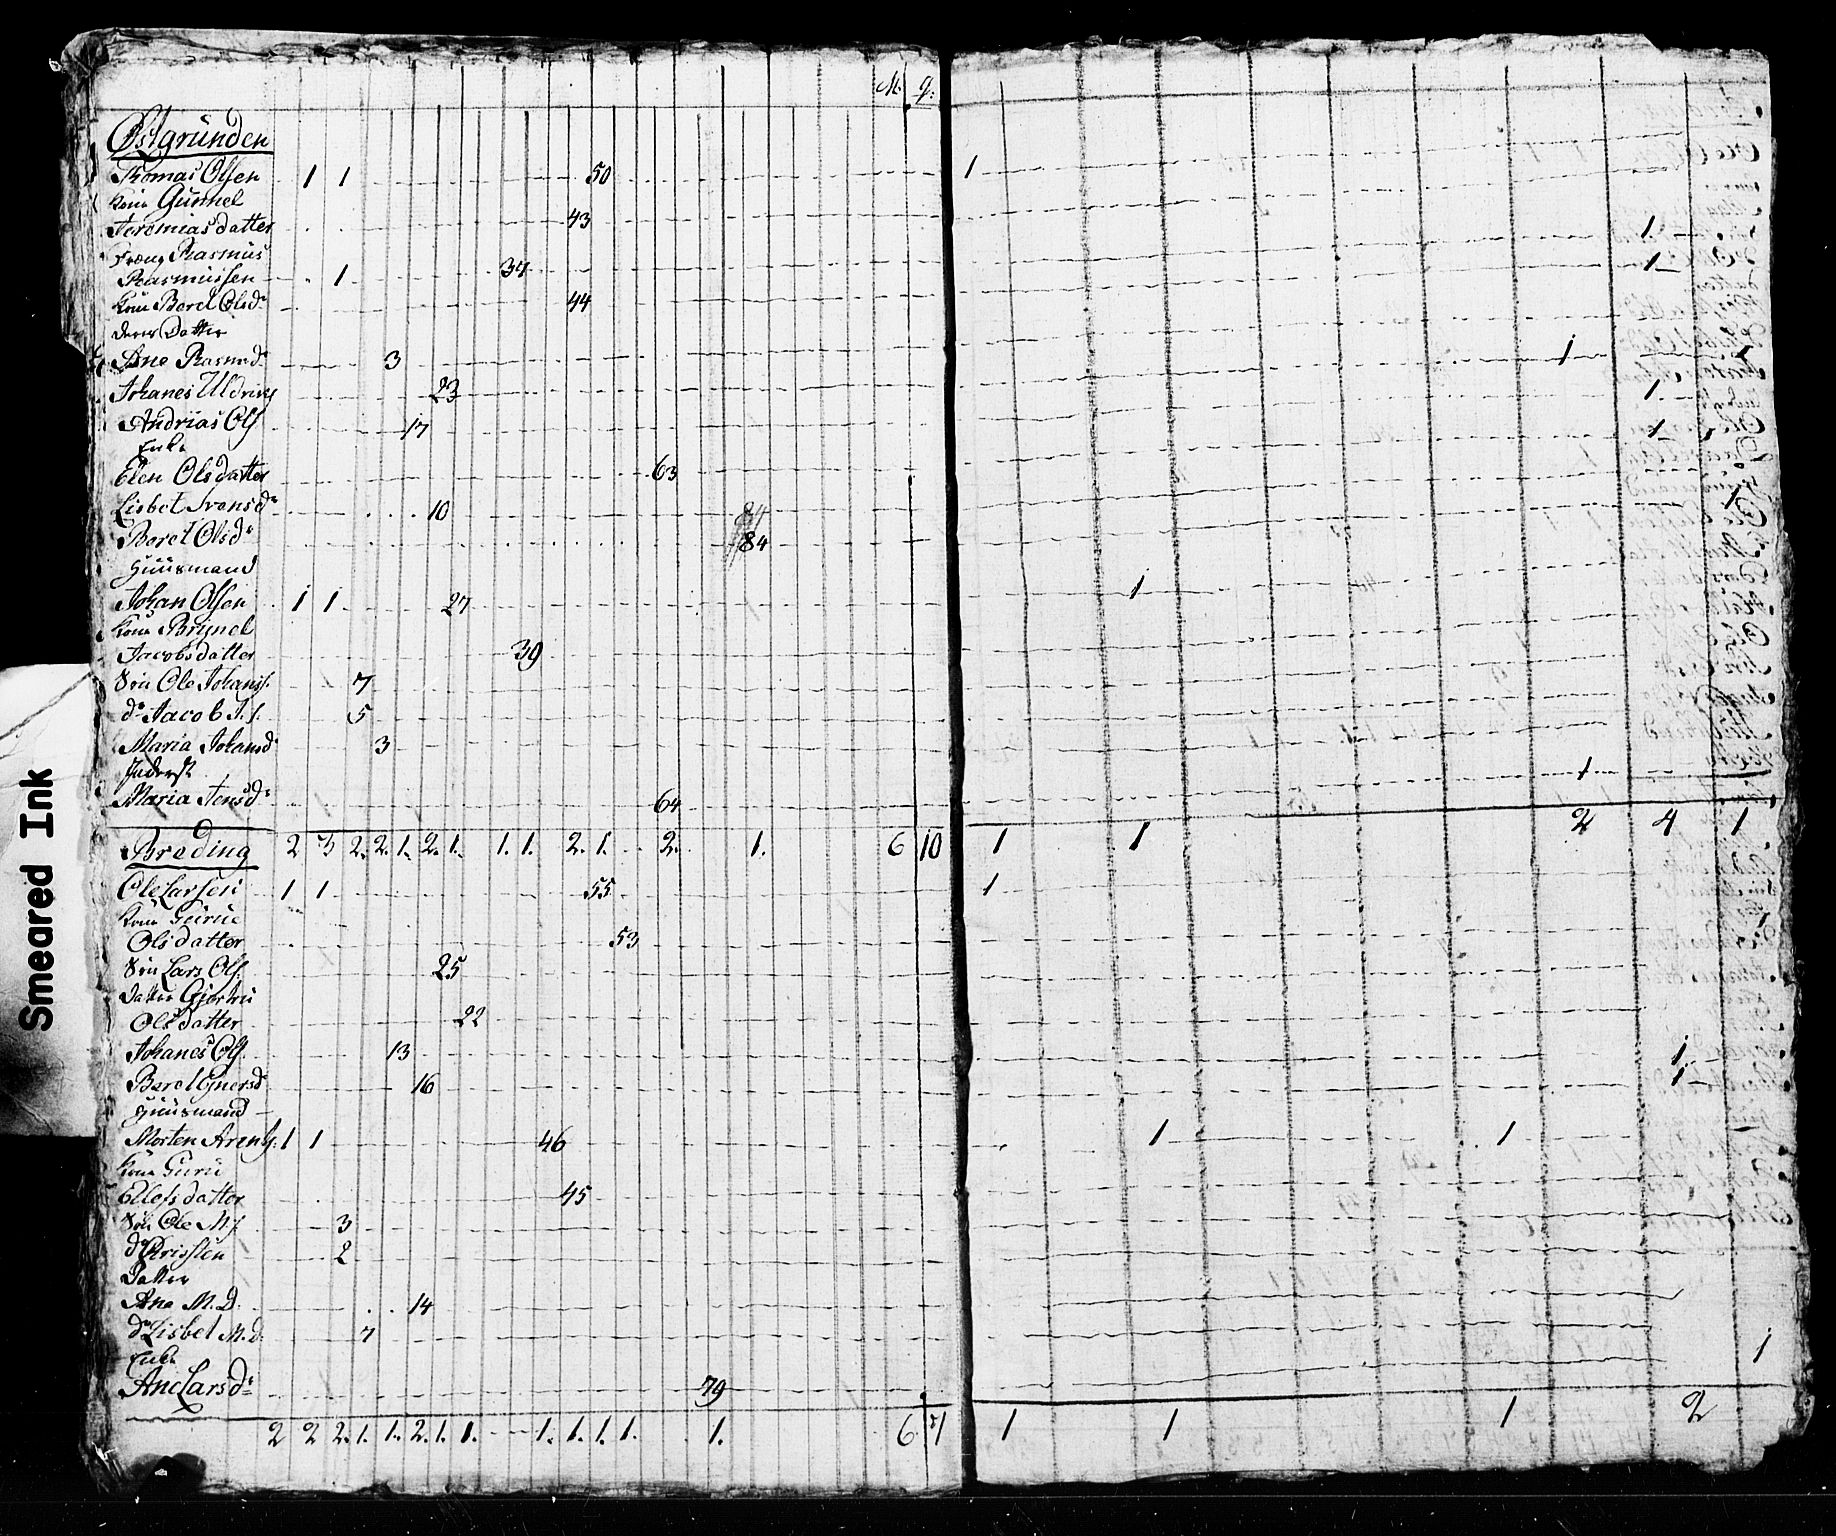 M. q.
Østgrunden
Thomas Olsen 1 1 50 1
Kone Gunnel
Jeremiasdatter 43 1
Rasmus 1
Rasmussen 1 37
Kone Beret Olsdr 44
deres Datter
Ane Rasmusdr 3 1 1
Johanes Uldrichs 23 1
Andrias Ols 17 1
Enke
Elen Olsdatter 63
Lisbet Iversdr 10 1
Beret Olsdr 84
Huusmand
Johan Olsen 1 1 27 1
Kone Brynel
Jacobsdatter 39
Søn Ole Johans. 7
do Jacob J.s. 5
Maria Johansd 3
Inderst 1
Maria Jensdr 64
2 3 2. 2. 1. 2. 1. 1. 1. 2. 1. 2. 1. 6 10 1 1 2 4 1
Breding
Ole Larsen 1 1 55 1
Kone Guru 1
Olsdatter 53
Søn Lars Ols. 25
Datter Gjertru
Olsdatter 22
Johanes Ols. 13 1
Beret Einersd 16 1
Huusmand
Morten Arents. 1 1 46 1 1
Kone Guru
Ellefsdatter 45
Søn Ole M.s. 3
do Kristen 2
Datter
Ane M.D. 14
do Lisbet M.d. 7
Enke 1
Ane Larsdr 79
2 2 2. 1. 1. 2. 1. 1. 1. 1. 1. 1. 1. 6 7 1 1 1 2
Smeared Ink